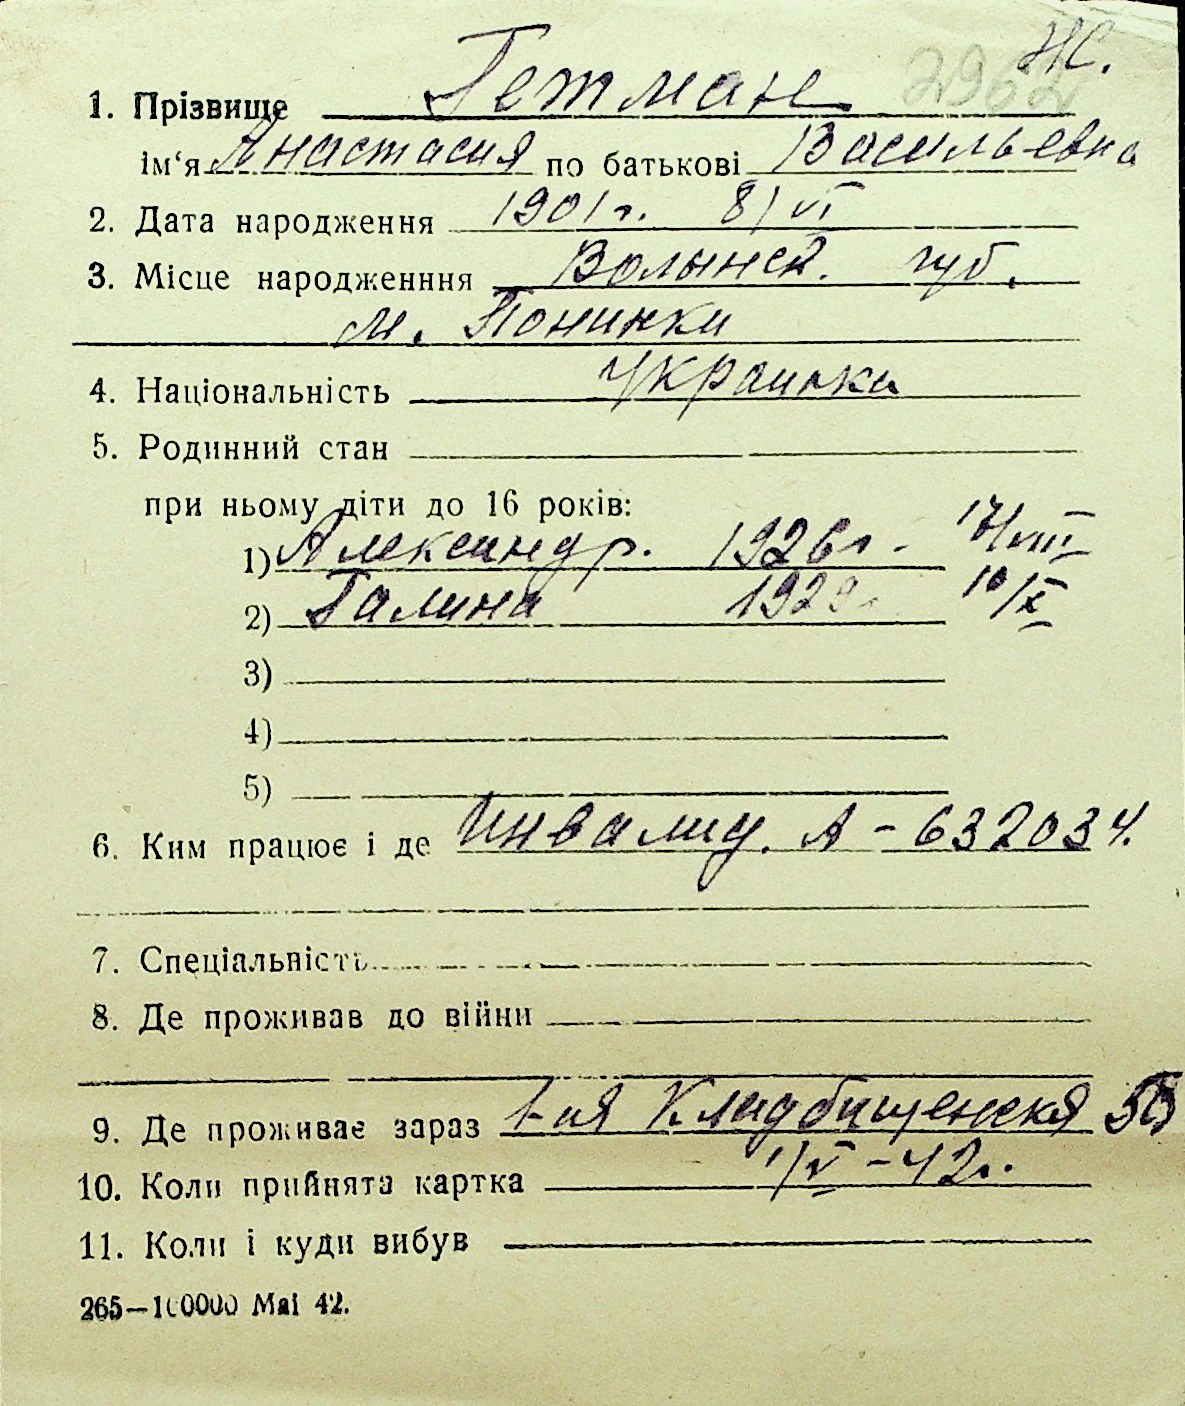 Ж.
2962
1. Прізвище Гетман
ім‘я Анастасия по батькові Васильевна
2. Дата народження 1901 г. 8/VI
3. Місце народженння Волынск. губ.
м. Понинки
4. Національність Украинка
5. Родинний стан
при ньому діти до 16 років:
1) Александр. 1926 г. 17/VIII
2) Галина 1929 г. 10/X
3)
4)
5)
6. Ким працює і де Инвалид. А - 632034.
7. Спеціальність
8. Де проживав до війни
9. Де проживає зараз 1-ая Кладбищенская
10. Коли прийнята картка 1/V - 42 г.
11. Коли і куди вибув
265—100000 Маі 42.